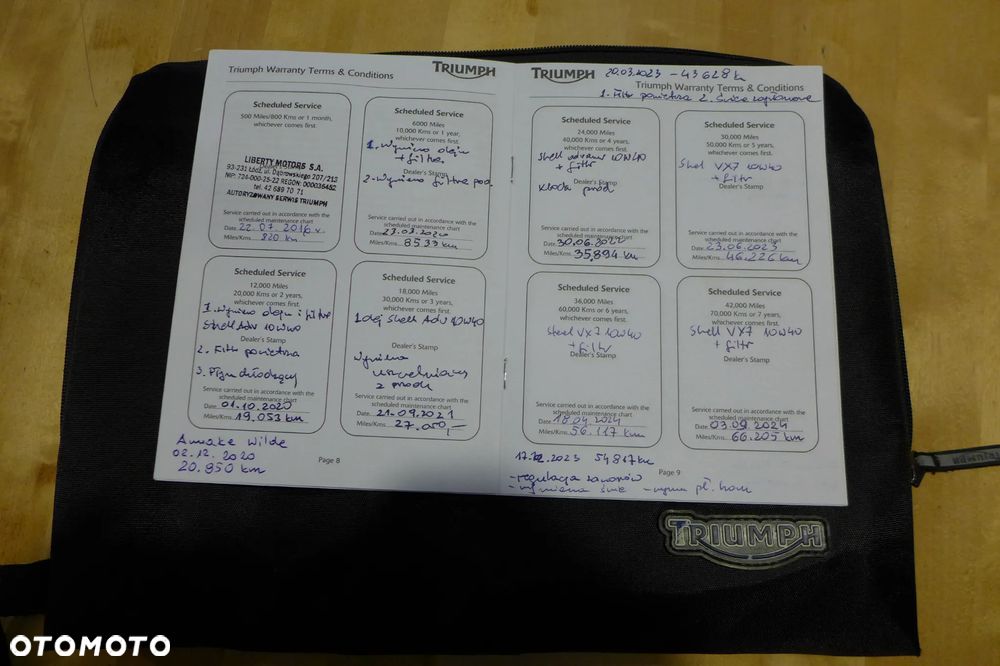 Triumph Warranty Terms & Conditions
TRIUMPH
Scheduled Service
500 Miles/800 Kms or 1 month,
whichever comes first.
LIBERTY MOTORS S.A.
93-231 Łódź, ul. Dąbrowskiego 207/213
NIP: 724-000-25-22 REGON: 000036452
tel. 42 689 70 71
AUTORYZOWANY SERWIS TRIUMPH
Service carried out in accordance with the
scheduled maintenance chart
Date 22.07.2016 r.
Miles/Kms 820 km
Scheduled Service
6000 Miles
10,000 Kms or 1 year,
whichever comes first.
1. wymiana oleju
+ filtra
Dealer's Stamp
2. wymiana filtra pod.
Service carried out in accordance with the
scheduled maintenance chart
Date 23.03.2020
Miles/Kms 8533 km
Scheduled Service
12,000 Miles
20,000 Kms or 2 years,
whichever comes first.
1. wymiana oleju i filtra
Shell Adv 10W40
Dealer's Stamp
2. Filtr powietrza
3. Płyn chłodzący
Service carried out in accordance with the
scheduled maintenance chart
Date 01.10.2020
Miles/Kms 19.053 km
Scheduled Service
18,000 Miles
30,000 Kms or 3 years,
whichever comes first.
1 olej Shell Adv 10W40
Dealer's Stamp
wymiana
uszczelniaczy
z przodu
Service carried out in accordance with the
scheduled maintenance chart
Date 21.09.2021
Miles/Kms 27.000,-
Wilde
02.12.2020
20.950 km
Page 8
TRIUMPH 20.03.2023 - 43628 km
Triumph Warranty Terms & Conditions
1. Filtr powietrza 2. Świece zapłonowe
Scheduled Service
24,000 Miles
40,000 Kms or 4 years,
whichever comes first.
Shell advance 10W40
+ filtr
Dealer's Stamp
klocki przód
Service carried out in accordance with the
scheduled maintenance chart
Date 30.06.2022
Miles/Kms 35,894 km
Scheduled Service
30,000 Miles
50,000 Kms or 5 years,
whichever comes first.
Shell VX7 10W40
+ filtr
Dealer's Stamp
Service carried out in accordance with the
scheduled maintenance chart
Date 23.06.2023
Miles/Kms 46.226 km
Scheduled Service
36,000 Miles
60,000 Kms or 6 years,
whichever comes first.
Shell VX7 10W40
+ filtr
Dealer's Stamp
Service carried out in accordance with the
scheduled maintenance chart
Date 16.04.2024
Miles/Kms 56.117 km
Scheduled Service
42,000 Miles
70,000 Kms or 7 years,
whichever comes first.
Shell VX7 10W40
+ filtr
Dealer's Stamp
Service carried out in accordance with the
scheduled maintenance chart
Date 03.09.2024
Miles/Kms 66.205 km
17.12.2023 54817 km
Page 9
- regulacja zaworów
- wymiana świec - wymiana pł. ham
TRIUMPH
TRIUMPH
OTOMOTO